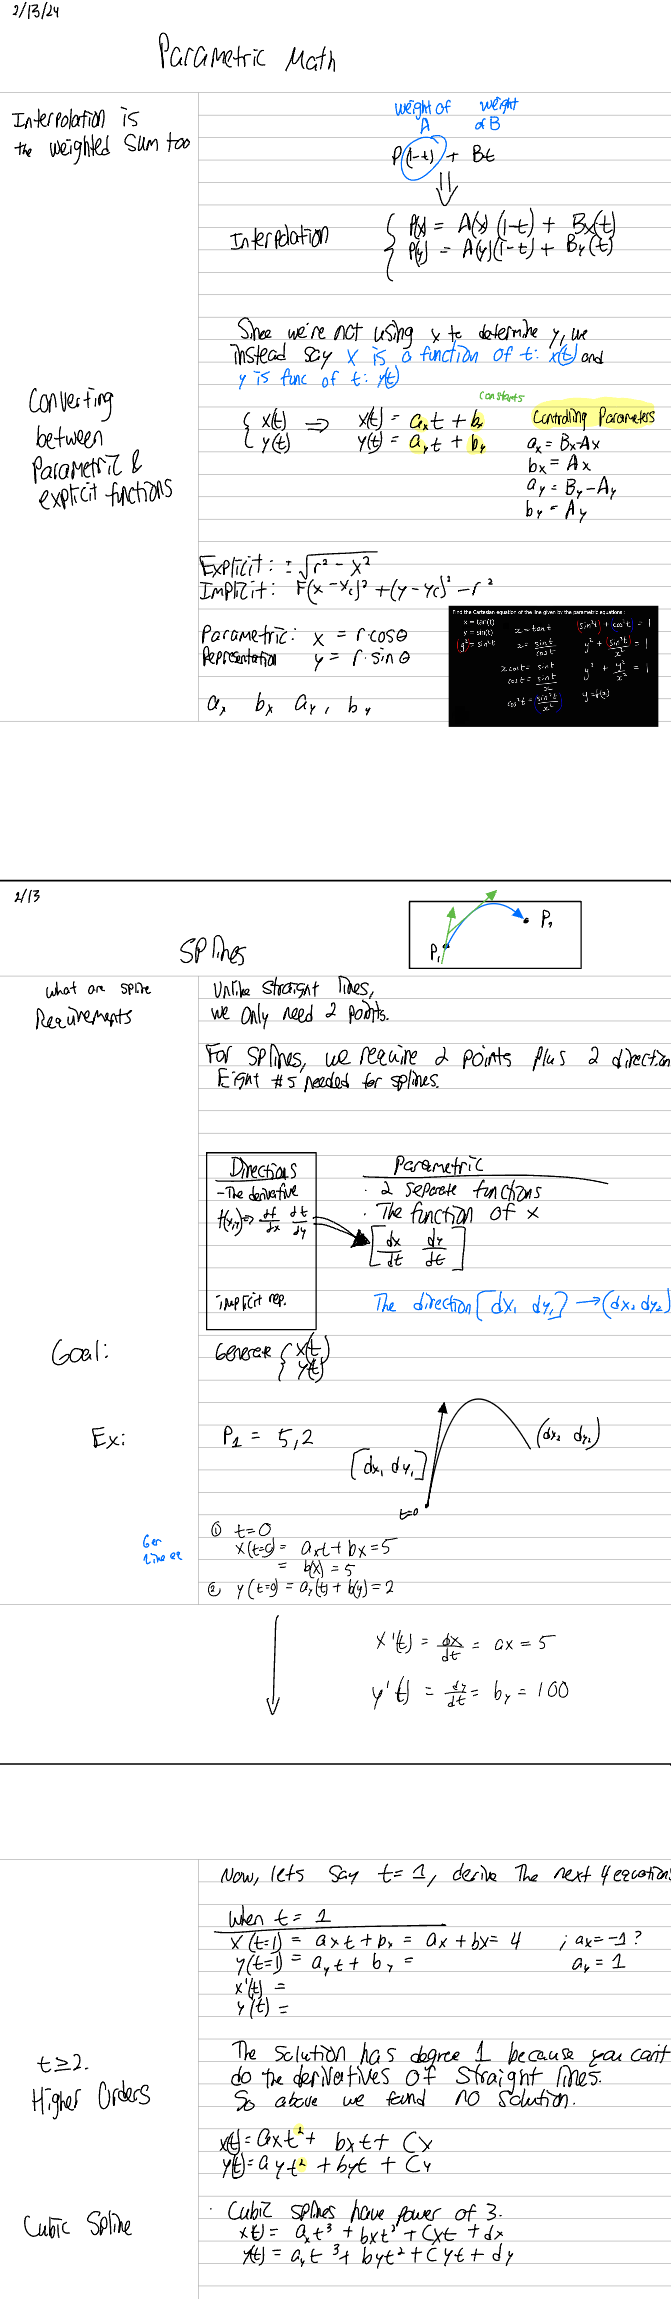 2/13/24
Parametric Math
Interpolation is
the weighted sum too
weight of A
weight of B
P(1-t) + Bt
⇓
Interpolation
P(x) = A(x)(1-t) + Bx(t)
P(y) = A(y)(1-t) + By(t)
Since we're not using x to determine y, we
instead say x is a function of t: x(t) and
y is func of t: y(t)
Converting
between
Parametric &
explicit functions
constants
{ x(t) ⇒ x(t) = axt + bx
{ y(t) y(t) = ayt + by
Controlling Parameters
ax = Bx-Ax
bx = Ax
ay = By-Ay
by = Ay
Explicit: ± √r² - x²
Implicit: F(x - xc)² + (y - yc)² - r²
Parametric: x = r cosθ
Representation y = r · sinθ
ax bx ay, by
Find the Cartesian equation of the line given by the parametric equations :
x = tan(t)
y = sin(t)
y² = sin²t
x = tan t
x = sin t / cos t
x cos t = sin t
cos t = sin t / x
cos²t = sin²t / x²
sin²t + cos²t = 1
y² + sin²t / x² = 1
y² + y² / x² = 1
y = f(x)
2/13
Splines
P₁
P₁
what are spline
Requirements
Unlike straight lines,
we only need 2 points.
For splines, we require 2 points plus 2 direction
Eight #s needed for splines.
Directions
- The derivative
f(x,y) ⇒ df/dx dt/dy
implicit rep.
Parametric
· 2 separate functions
· The function of x
[dx/dt dy/dt]
The direction [dx₁ dy₁] → (dx₂ dy₂)
Goal:
Generate { x(t)
{ y(t)
Ex:
P₁ = 5,2
[dx₁ dy₁]
(dx₂ dy₂)
t=0
① t=0
x(t=0) = axt + bx = 5
= b(x) = 5
② y(t=0) = ay(t) + b(y) = 2
x'(t) = dx/dt = ax = 5
y'(t) = dy/dt = by = 100
Now, lets say t = 1, derive the next 4 equations
When t = 1
x(t=1) = axt + bx = ax + bx = 4 ; ax = -1 ?
y(t=1) = ayt + by = ay = 1
x'(t) =
y'(t) =
t ≥ 2.
Higher Orders
The solution has degree 1 because you can't
do the derivatives of straight lines.
So above we found no solution.
x(t) = axt² + bxt + Cx
y(t) = ayt² + byt + Cy
Cubic Spline
· Cubic splines have power of 3.
x(t) = axt³ + bxt² + Cxt + dx
y(t) = ayt³ + byt² + Cyt + dy